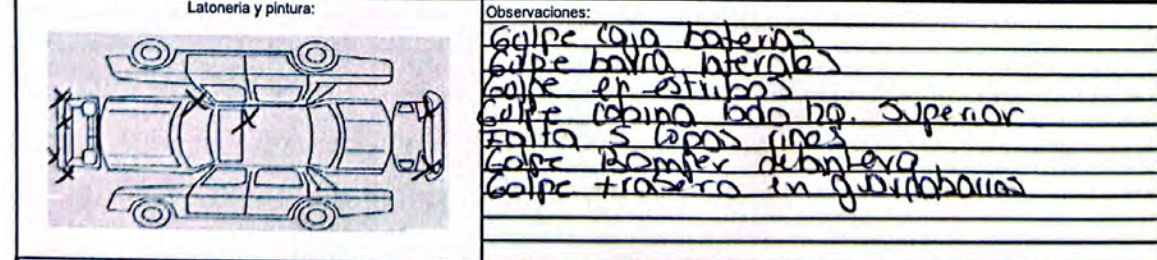 Latonería y pintura:
Observaciones:
Golpe caja baterias
Golpe barra laterales
Golpe en estribos
Golpe cabina lado izq. Superior
Falta 5 copas rines
Golpe Bomper delantero
Golpe trasero en guardabarros